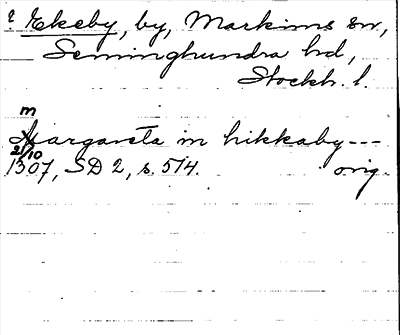 ? Ekeby, by, Markims sn,
Seminghundra hd,
Stockh. l.
m
Margareta in hikkaby ---
21/10
1307, SD 2, s. 574. orig.